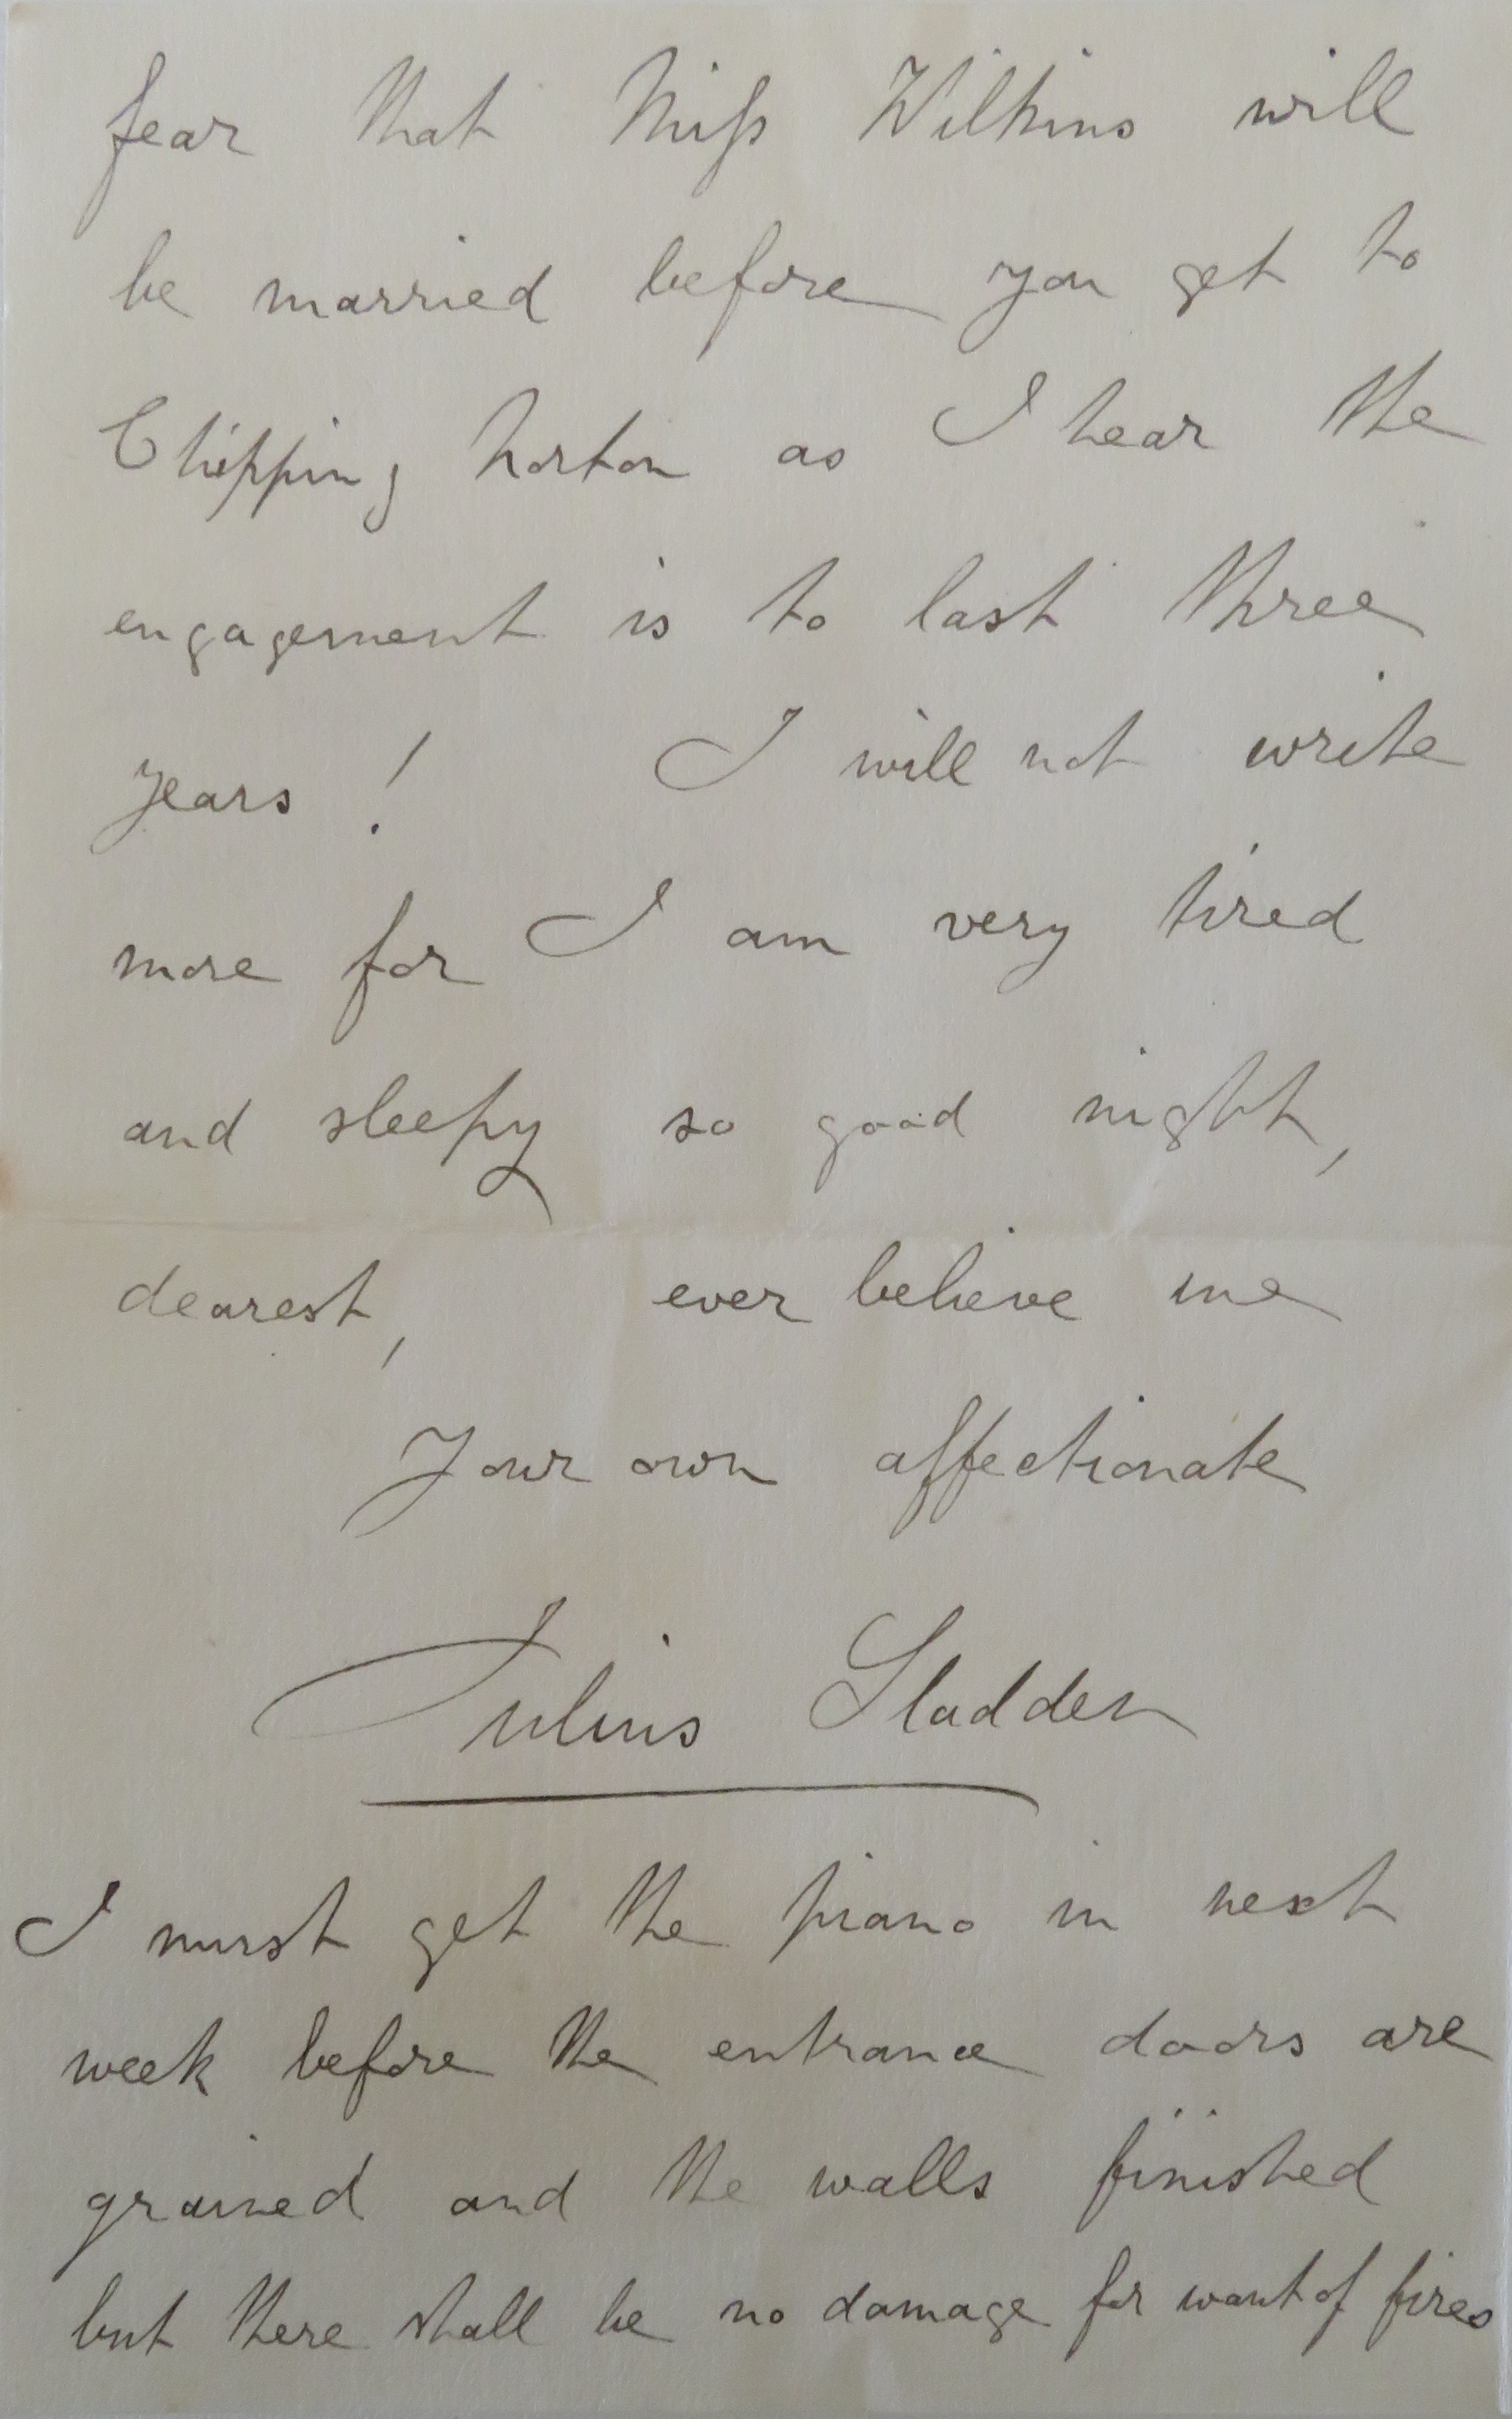 fear that Miſs Wilkins will
be married before you get to
Chipping Norton as I hear the
engagement is to last three
years ! I will not write
more for I am very tired
and sleepy so good night,
dearest, ever believe me
Your own affectionate
Julius Sladden
I must get the piano in next
week before the entrance doors are
grained and the walls finished
but there shall be no damage for want of fires